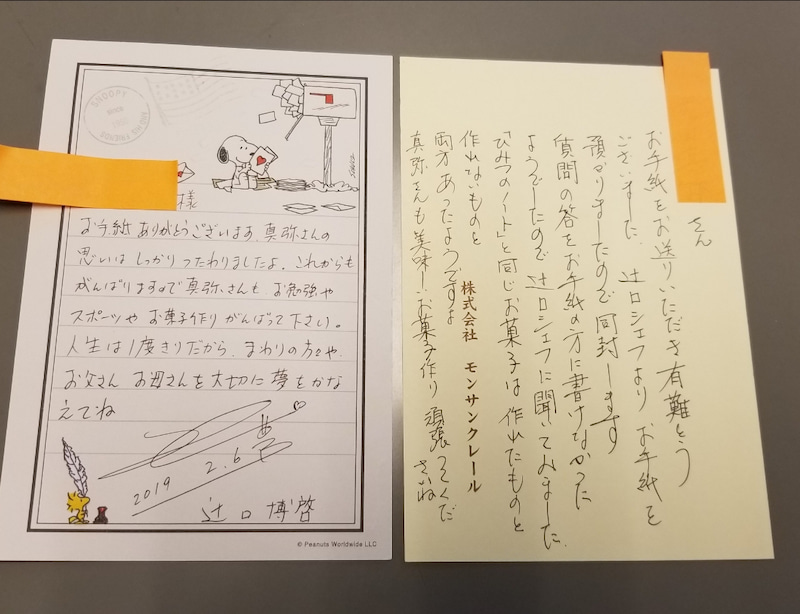 SNOOPY
AND HIS FRIENDS
様
お手紙ありがとうございます。真弥さんの
思いはしっかりつたわりましたよ。これからも
がんばりますので真弥さんも、お勉強や
スポーツやお菓子作りがんばって下さい。
人生は1度きりだから、まわりの方々や、
お父さん お母さんを大切に夢をかな
えてね
2019 2.6
辻口博啓
© Peanuts Worldwide LLC
さん
お手紙をお送りいただき有難とう
ございました。辻口シェフよりお手紙を
預かりましたので同封します
質問の答をお手紙の方に書けなかった
ようでしたので辻口シェフに聞いてみました。
「ひみつのノート」と同じお菓子は作れたものと
作れないものと
両方あったようですよ
真弥さんも美味しいお菓子作り頑張ってくだ
さいね
株式会社 モンサンクレール